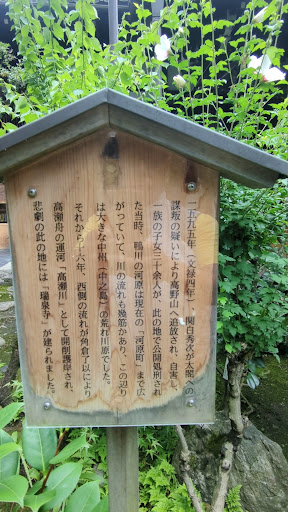 一五九五年(文禄四年)、関白秀次が太閤への
謀叛の疑いにより高野山へ追放され、自害し、
一族の子女三十余人が、此の地で公開処刑され
た当時、鴨川の河原は現在の「河原町」まで広
がっていて、川の流れも幾筋かあり、この辺り
は大きな中州(中之島)の荒れ川原でした。
それから十六年、西側の流れが角倉了以により
高瀬舟の運河「高瀬川」として開削護岸され、
悲劇の此の地には「瑞泉寺」が建られました。